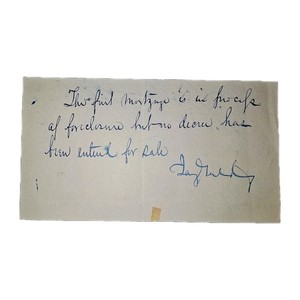 The first mortgage is in process
of foreclosure but no decree has
been entered for sale